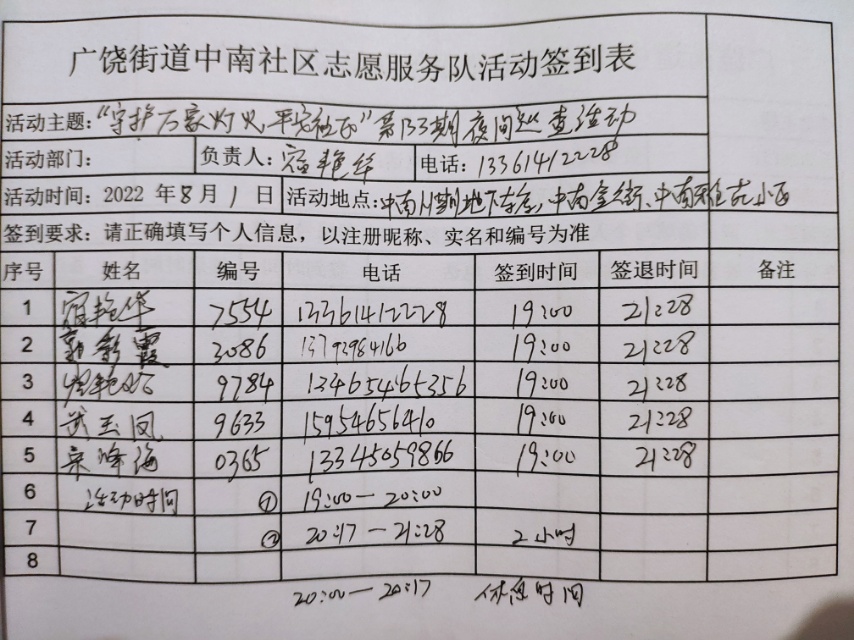 广饶街道中南社区志愿服务队活动签到表
活动主题:"守护万家灯火,平安社区"第133期夜间巡查活动
活动部门: 负责人: 宿艳华 电话: 13361412228
活动时间: 2022 年 8 月 1 日 活动地点: 中南 期地下车库,中南 街、中南 小区
签到要求: 请正确填写个人信息，以注册昵称、实名和编号为准
序号 姓名 编号 电话 签到时间 签退时间 备注
1 宿艳华 7554 13361412228 19:00 21:28
2 郭彩霞 3086 13793984166 19:00 21:28
3 艳 9784 13465465356 19:00 21:28
4 武玉凤 9633 15954656410 19:00 21:28
5 海 0365 13345059866 19:00 21:28
6 活动时间 ① 19:00—20:00
7 ② 20:17—21:28 2小时
8
20:00—20:17 休息时间